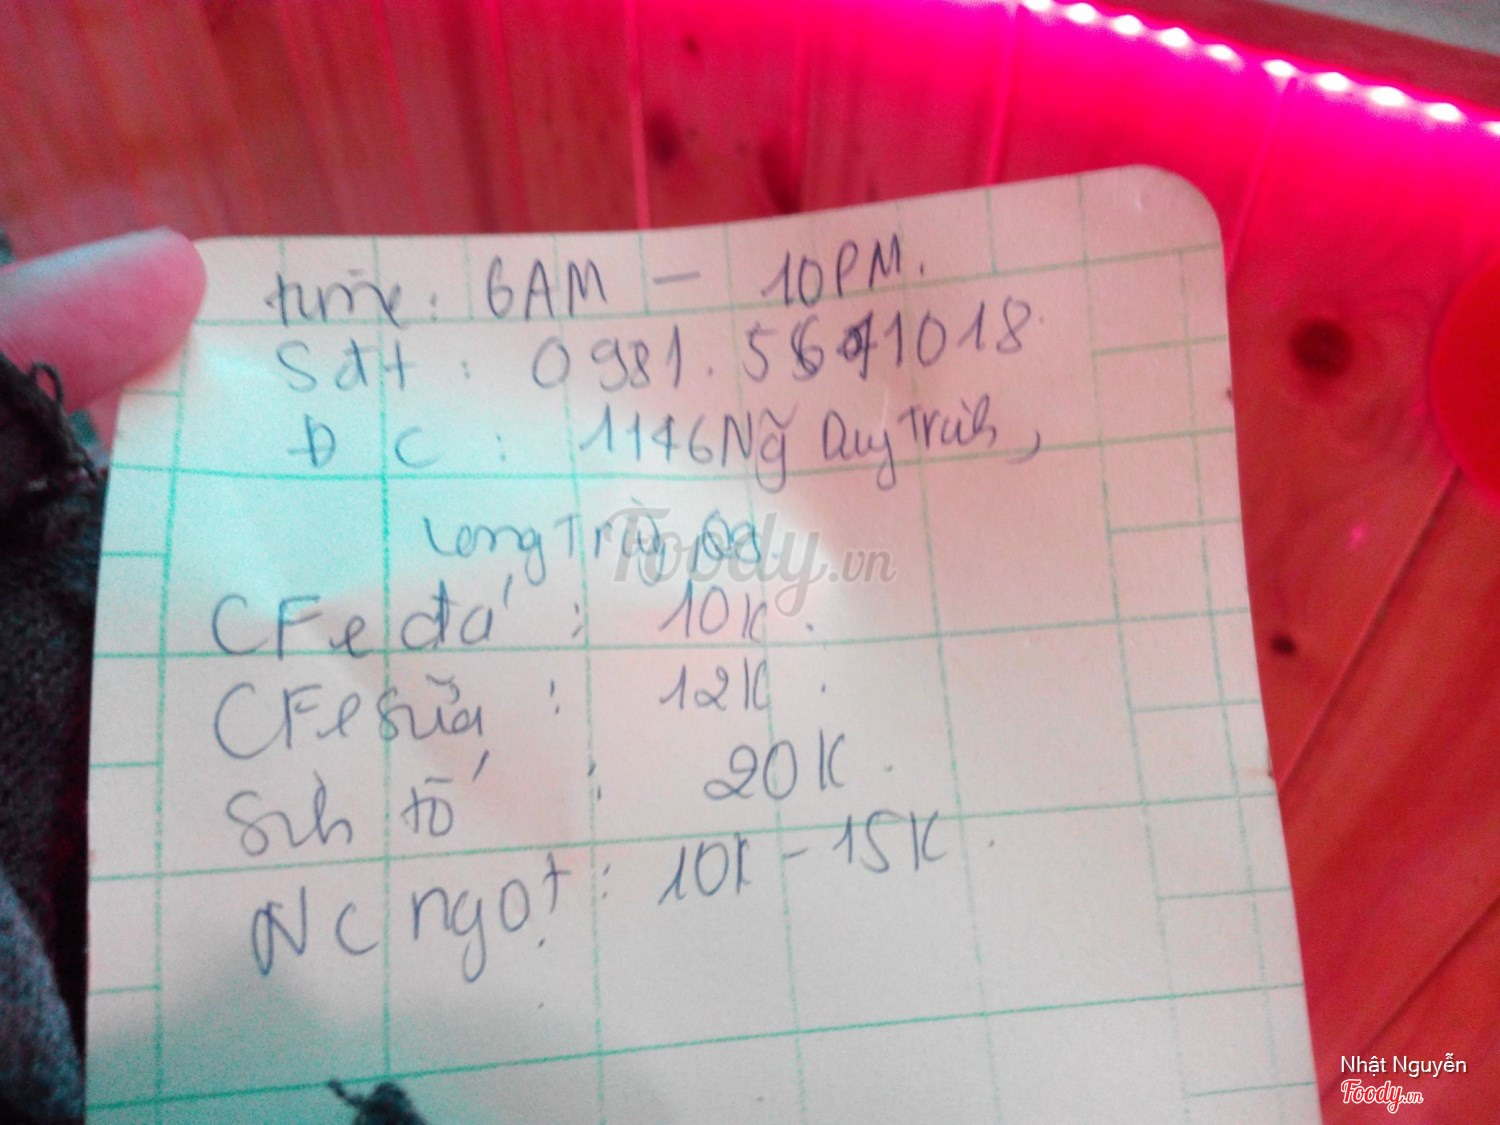 time: 6AM - 10PM.
Sđt: 0981.5
ĐC: 1146 Ng̃ Duy Trinh,
Long Trường, Q9.
CFe đá: 10K.
CFe sữa: 12K.
Sinh tố: 20K.
Nc ngọt: 10K - 15K.
Foody.vn
Nhật Nguyễn
Foody.vn